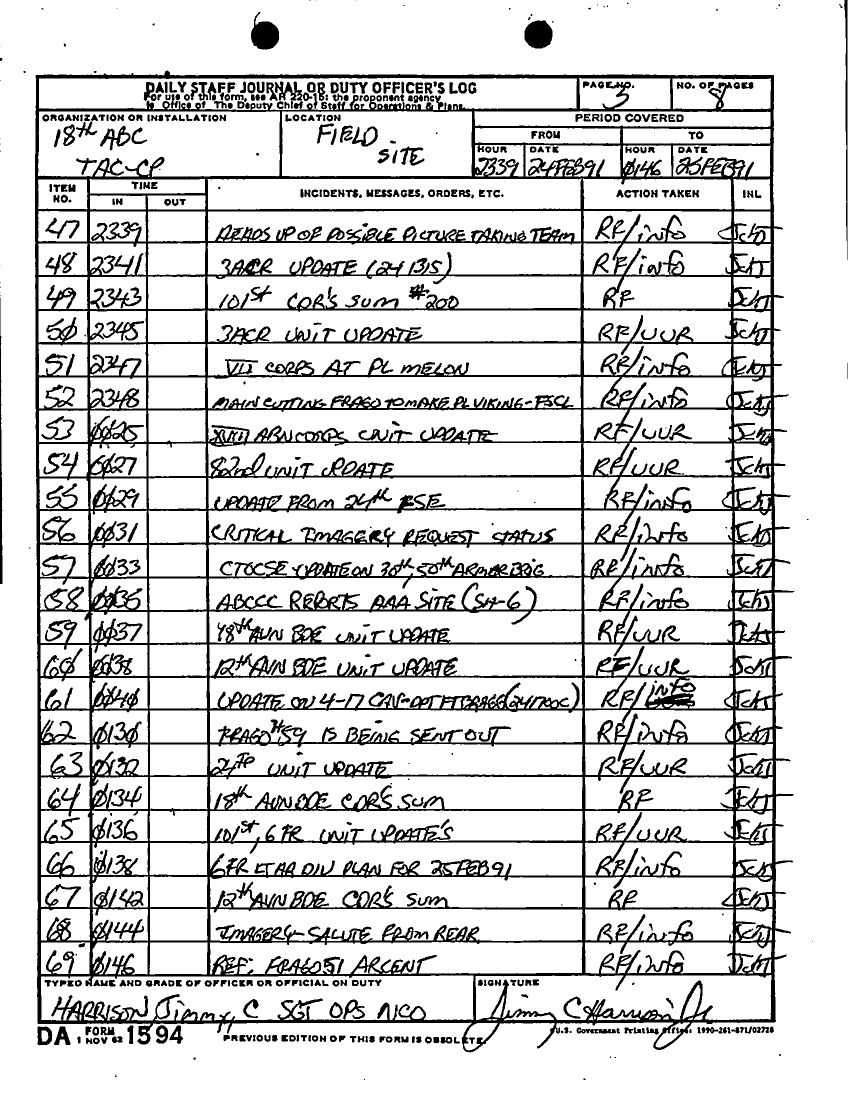 DAILY STAFF JOURNAL OR DUTY OFFICER'S LOG
For use of this form, see AR 220-15; the proponent agency
is Office of The Deputy Chief of Staff for Operations & Plans.
PAGE NO. 3
NO. OF PAGES 8
ORGANIZATION OR INSTALLATION
18th ABC
TAC-CP
LOCATION
FIELD
SITE
PERIOD COVERED
FROM TO
HOUR DATE HOUR DATE
2339 24FEB91 0146 25FEB91
ITEM NO. TIME INCIDENTS, MESSAGES, ORDERS, ETC. ACTION TAKEN INL
IN OUT
47 2339 HEADS UP OF POSSIBLE PICTURE TAKING TEAM RF/info
48 2341 3ACR UPDATE (241315) RF/info
49 2343 101st CDR'S SUM #200 RF
50 2345 3ACR UNIT UPDATE RF/UUR
51 2347 VII CORPS AT PL MELON RF/info
52 2348 MAIN CUTTING FRAGO TO MAKE PL VIKING-FSCL RF/info
53 0025 XVIII ABN CORPS UNIT UPDATE RF/UUR
54 0027 82nd UNIT UPDATE RF/UUR
55 0029 UPDATE FROM 24th FSE RF/info
56 0031 CRITICAL IMAGERY REQUEST STATUS RF/info
57 0033 CTOCSE UPDATE ON 30th, 50th ARMOR BRIG RF/info
58 0035 ABCCC REPORTS AAA SITE (SA-6) RF/info
59 0037 18th AVN BDE UNIT UPDATE RF/UUR
60 0038 12th AVN BDE UNIT UPDATE RF/UUR
61 0040 UPDATE ON 4-17 CAV-DPT FT BRAGG (241700C) RF/info
62 0130 FRAGO #59 IS BEING SENT OUT RF/info
63 0132 24th UNIT UPDATE RF/UUR
64 0134 18th AVN BDE CDR'S SUM RF
65 0136 101st, 6FR UNIT UPDATE'S RF/UUR
66 0138 6FR LT AR DIV PLAN FOR 25FEB91 RF/info
67 0142 12th AVN BDE CDR'S SUM RF
68 0144 IMAGERY-SALUTE FROM REAR RF/info
69 0146 REF: FRAGO 51 ARCENT RF/info
TYPED NAME AND GRADE OF OFFICER OR OFFICIAL ON DUTY
HARRISON Jimmy, C SGT OPS NCO
SIGNATURE
Jimmy C Harrison Jr
DA FORM 1594
1 NOV 62
PREVIOUS EDITION OF THIS FORM IS OBSOLETE.
U.S. Government Printing Office: 1990-261-871/02728